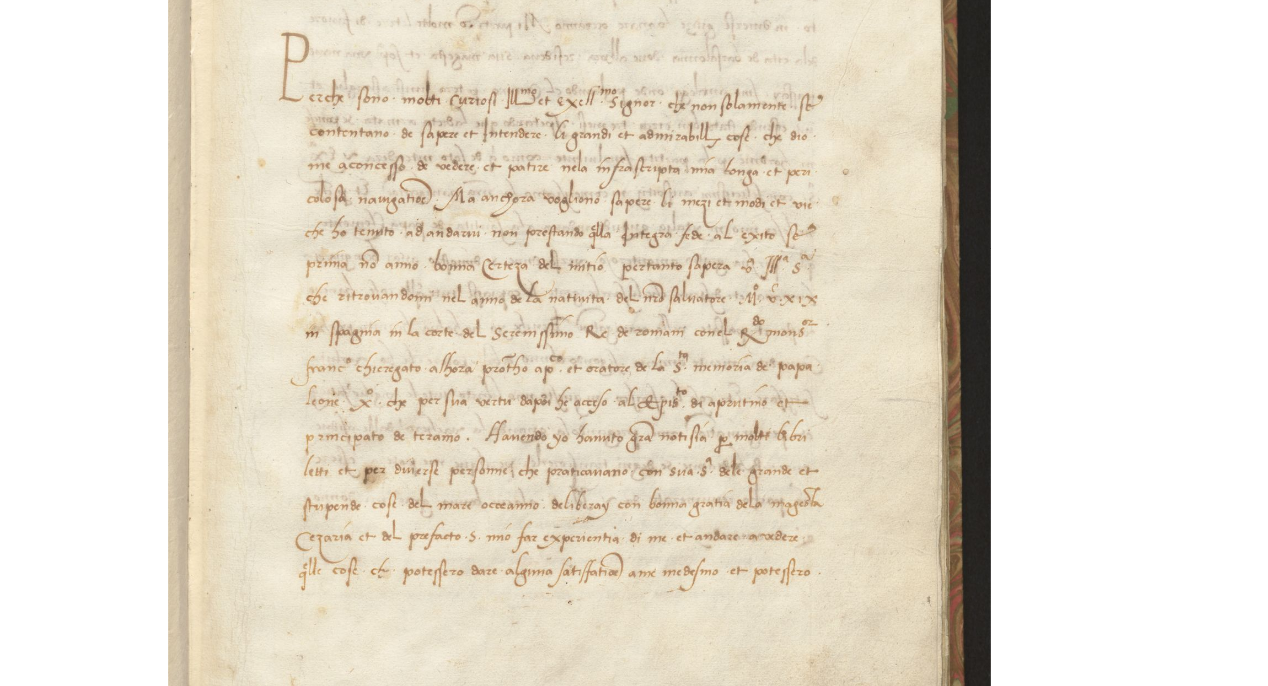 Perche sono · molti curiosi Illmo et exellmo · signor · che non solamente · se
contentano · de sapere et Intendere · li grandi et admirabilly cose · che dio ·
me aconcesso · de vedere · et patire nela infrascripta mia longa · et peri
colosa navigatioe) Ma anchora vogliono sapere · li mezi et modi et vie
che ho tenuto · ad andarui · non prestando qlla Integra fede · al exito se
prima nō anno · bonna Certeza del initio pertanto sapera v · Illa Sa
che ritrovandomi nel anno de la nativita · del nrō salvatore · Mo · v · xix
in spagnia in la corte · del Serenissimo Re · de romani con el Rdo monsor ·
franco chieregato · alhora protho apco · et oratore de la · Sta · memoria de papa
leone · xo · che per sua vertu dapoi he aceso · al Episto · di aprutino et
principato de teramo · Havendo yo havuto grā notisia p molti libri
letti et per diuerse personne che praticavano · con sua · Sa · dele grande et
stupende cose del mare occeanno deliberay con bonna gratia dela magesta
Cezaria et del prefacto · s · mio far experientia di me · et andare a vedere
qlle cose ch potessero dare · alguna satisfatioe) ame medesmo · et potessero ·